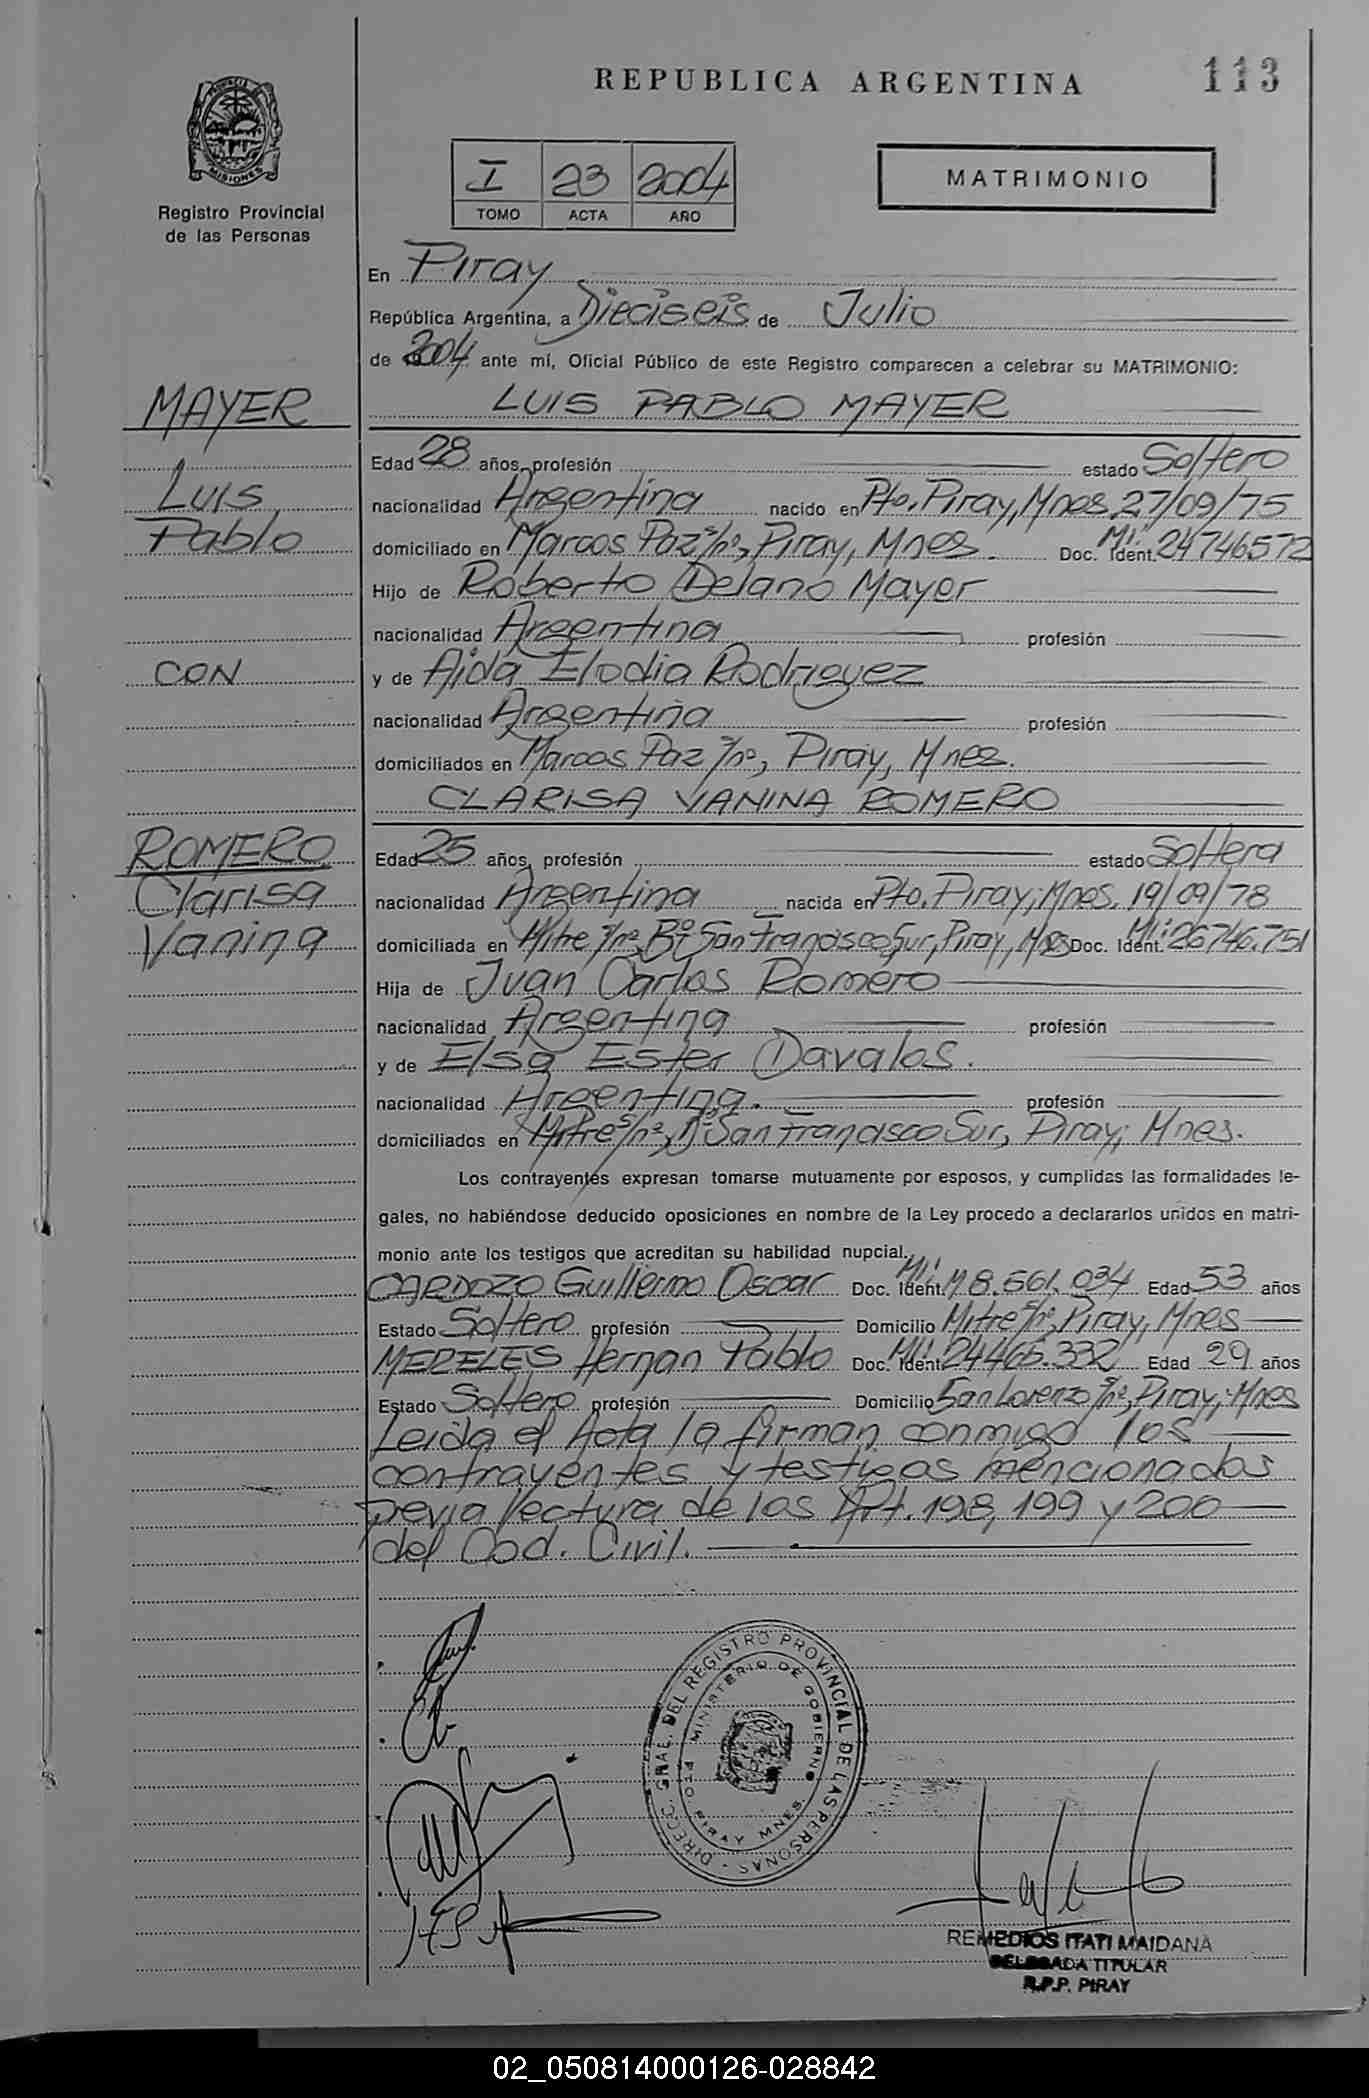 REPUBLICA ARGENTINA
113
PROVINCIA DE MISIONES
Registro Provincial
de las Personas
I 23 2004
TOMO ACTA AÑO
MATRIMONIO
En Piray
República Argentina, a Dieciseis de Julio
de 2004 ante mí, Oficial Público de este Registro comparecen a celebrar su MATRIMONIO:
MAYER
LUIS PABLO MAYER
Edad 28 años, profesión estado Soltero
Luis
nacionalidad Argentina nacido en Pto. Piray, Mnes. 27/09/75
Pablo
domiciliado en Marcos Paz s/nº, Piray, Mnes. Doc. Ident. M.I: 24746572
Hijo de Roberto Delano Mayer
nacionalidad Argentina profesión
CON
y de Aida Elodia Rodriguez
nacionalidad Argentina profesión
domiciliados en Marcos Paz s/nº, Piray, Mnes.
CLARISA VANINA ROMERO
ROMERO
Edad 25 años, profesión estado Soltera
Clarisa
nacionalidad Argentina nacida en Pto. Piray, Mnes. 19/09/78
Vanina
domiciliada en Mitre s/nº, Bº San Francisco Sur, Piray, Mnes Doc. Ident. M.I: 26746.751
Hija de Juan Carlos Romero
nacionalidad Argentina profesión
y de Elsa Ester Davalos.
nacionalidad Argentina. profesión
domiciliados en Mitre s/nº, Bº San Francisco Sur, Piray, Mnes.
Los contrayentes expresan tomarse mutuamente por esposos, y cumplidas las formalidades le-
gales, no habiéndose deducido oposiciones en nombre de la Ley procedo a declararlos unidos en matri-
monio ante los testigos que acreditan su habilidad nupcial.
CARDOZO Guillermo Oscar Doc. Ident. M.I: M 8.561.034 Edad 53 años
Estado Soltero profesión Domicilio Mitre s/nº, Piray, Mnes
MERELES Hernan Pablo Doc. Ident. M.I: 24465.332 Edad 29 años
Estado Soltero profesión Domicilio San Lorenzo s/nº, Piray, Mnes
Leida el Acta la firman conmigo los
contrayentes y testigos mencionados
previa lectura de los Art. 198, 199 y 200
del Cod. Civil.
DIRECC. GRAL. DEL REGISTRO PROVINCIAL DE LAS PERSONAS
MINISTERIO DE GOBIERNO
PTO. PIRAY MNES.
REMEDIOS ITATI MAIDANA
DELEGADA TITULAR
R.P.P. PIRAY
02_050814000126-028842